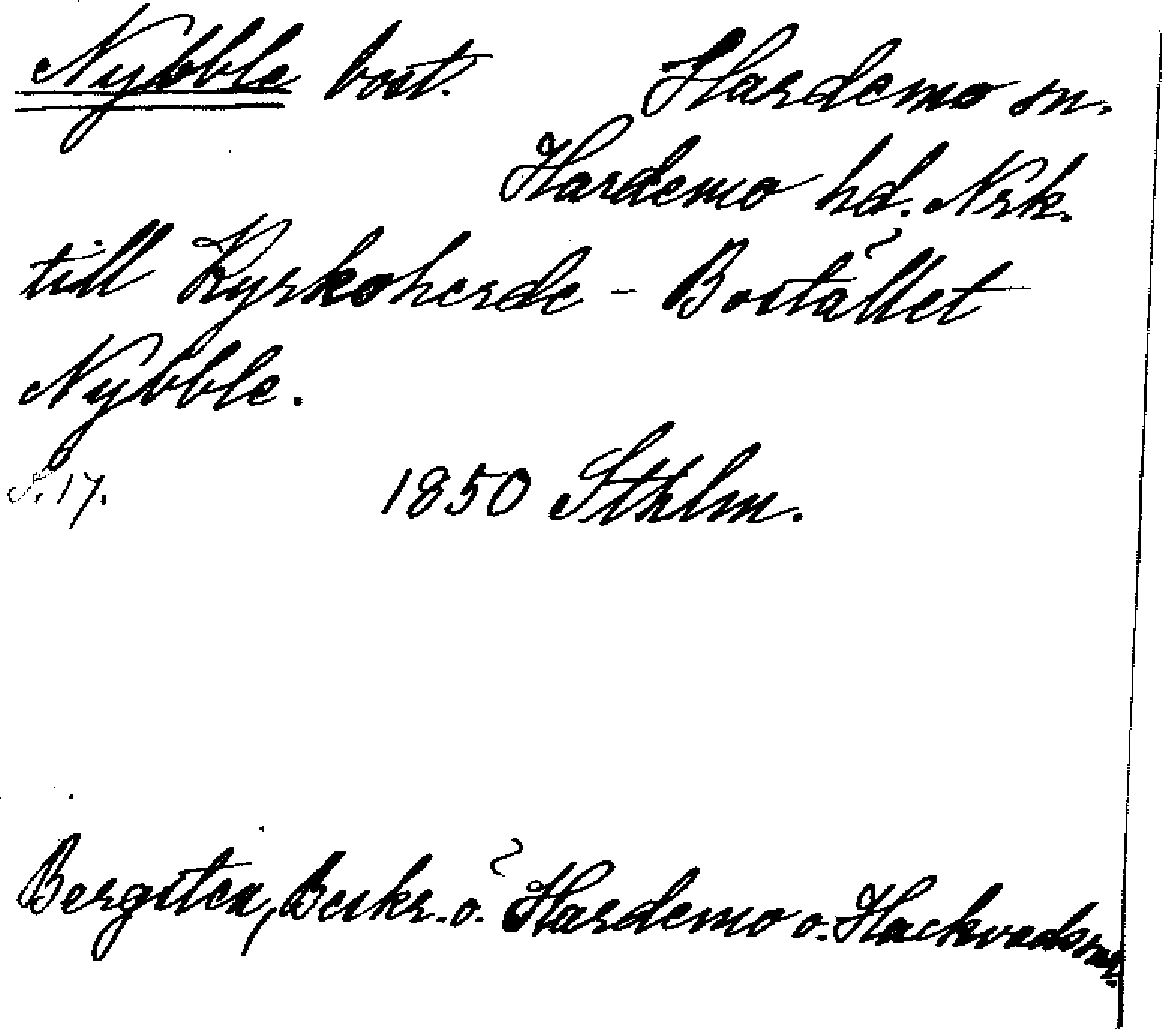 Nybble bost. Hardemo sn.
Hardemo hd. Nrk.
till Kyrkoherde-Bostället
Nybble.
S. 17. 1850 Sthlm.
Bergsten, Beskr. ö. Hardemo o. Hackvads snr.